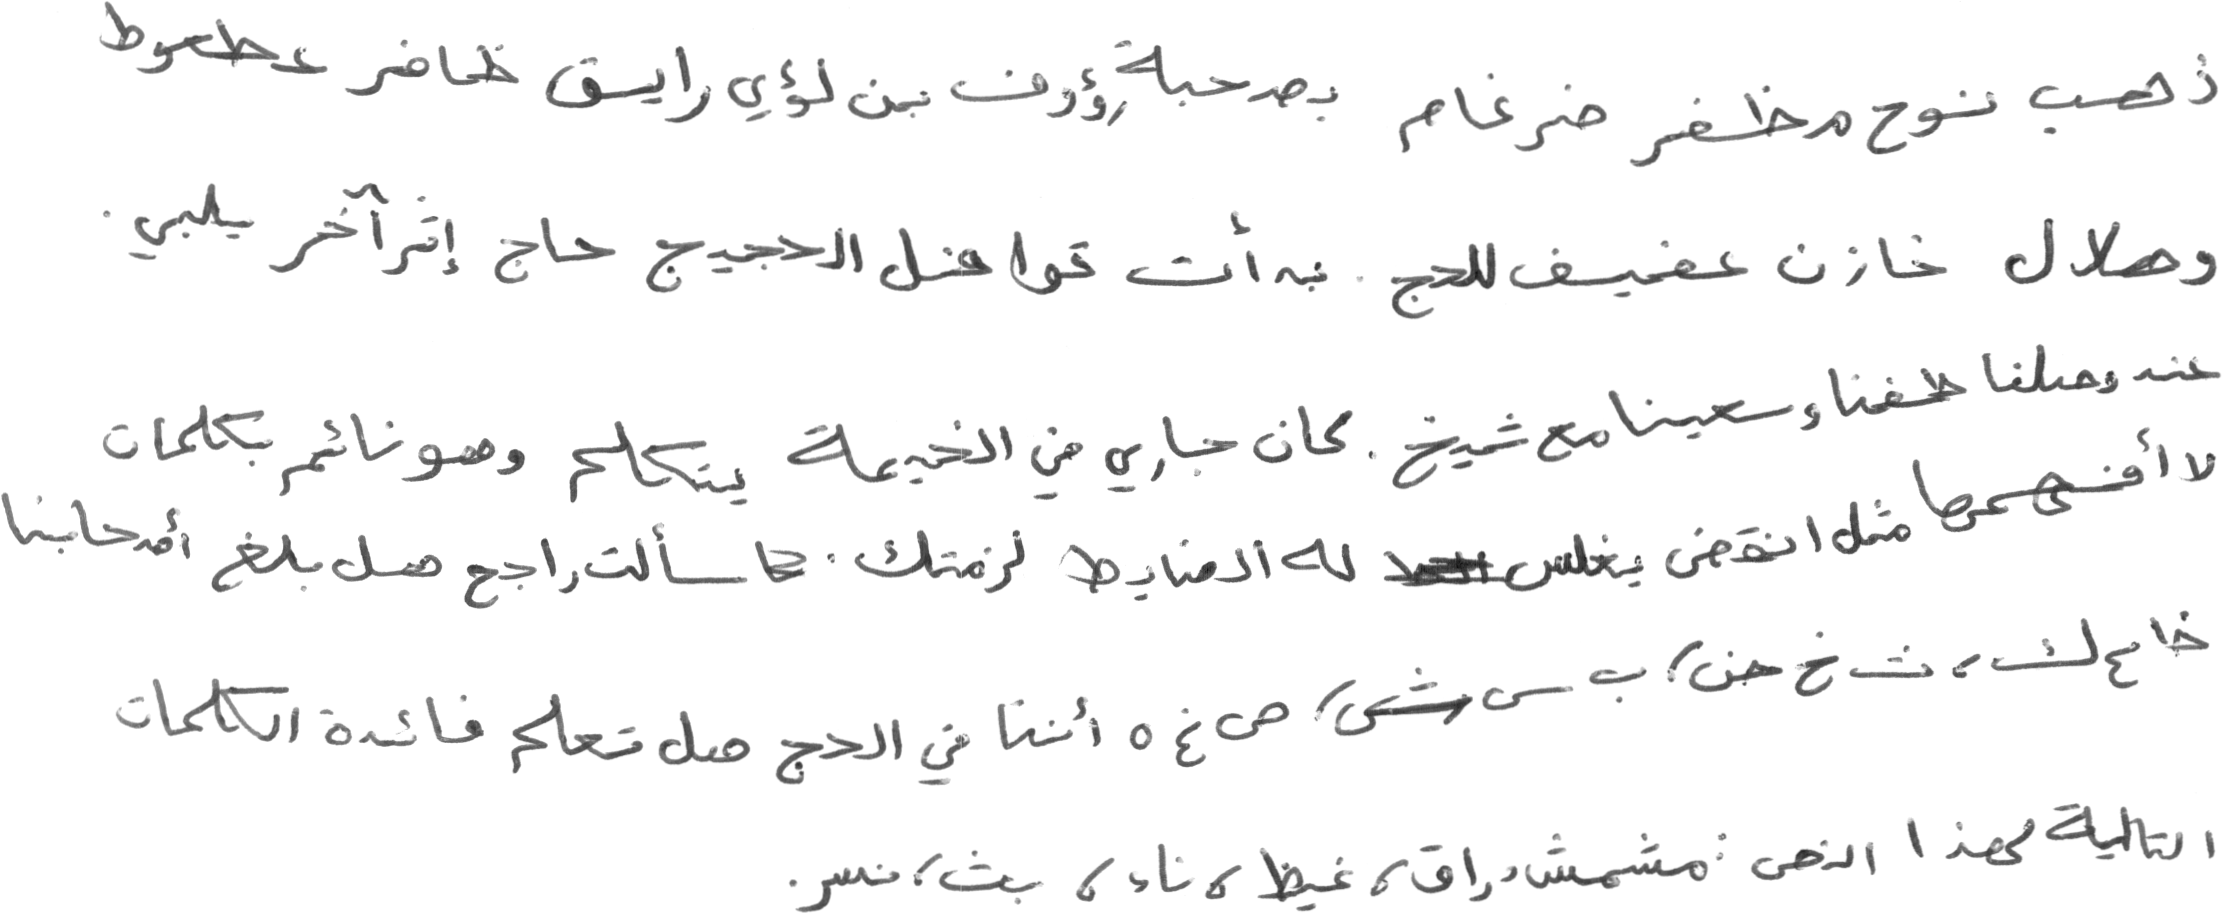 ذهب نوح مظفر ضرغام بصحبة رؤوف بن لؤي رايق ظافر عطعوط
وهلال خازن عفيف للحج . بدأت قوافل الحجيج حاج إثر آخر يلبي .
عند وصلنا طفنا وسعينا مع شيخ . كان جاري في الخيمة يتكلم وهو نائم بكلمات
لا أفهمها مثل انقض يغلس له الضابط لزمتك . كما سألت راجح هل بلغ أصحابنا
خا ع لك، ث خ ض، ب س ش، ص غ ه أننا في الحج هل تعلم فائدة الكلمات
التالية لهذا النص : مشمش، راق، غيظ، ناء، بث، نسر.